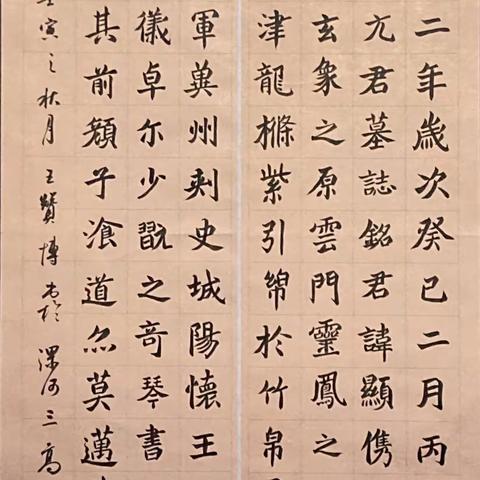 二年歲次癸巳二月丙
元君墓誌銘君諱顯儁
玄象之原雲門靈鳳之
津龍樤紫引綿於竹帛
軍冀州刾史城陽懷王
儀卓尓少翫之奇琴書
其前顏子飡道亦莫邁
壬寅之秋月 王賢博書於 漯河三高